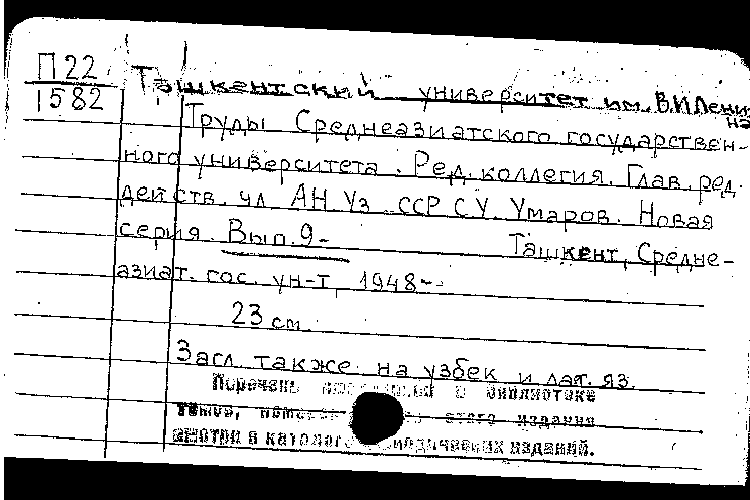 П22
1582
Ташкентский университет им. В.И.Ленина
Труды Среднеазиатского государствен-
ного университета. Ред. коллегия. Глав. ред.
действ. чл АН Уз. ССР С У. Умаров. Новая
серия. Вып. 9- Ташкент, Средне-
азиат. гос. ун-т, 1948--
23 см.
Засл. также на узбек и лат. яз.
Перечень в библиотеке
томов, этого издания
смотри в каталоге изданий.